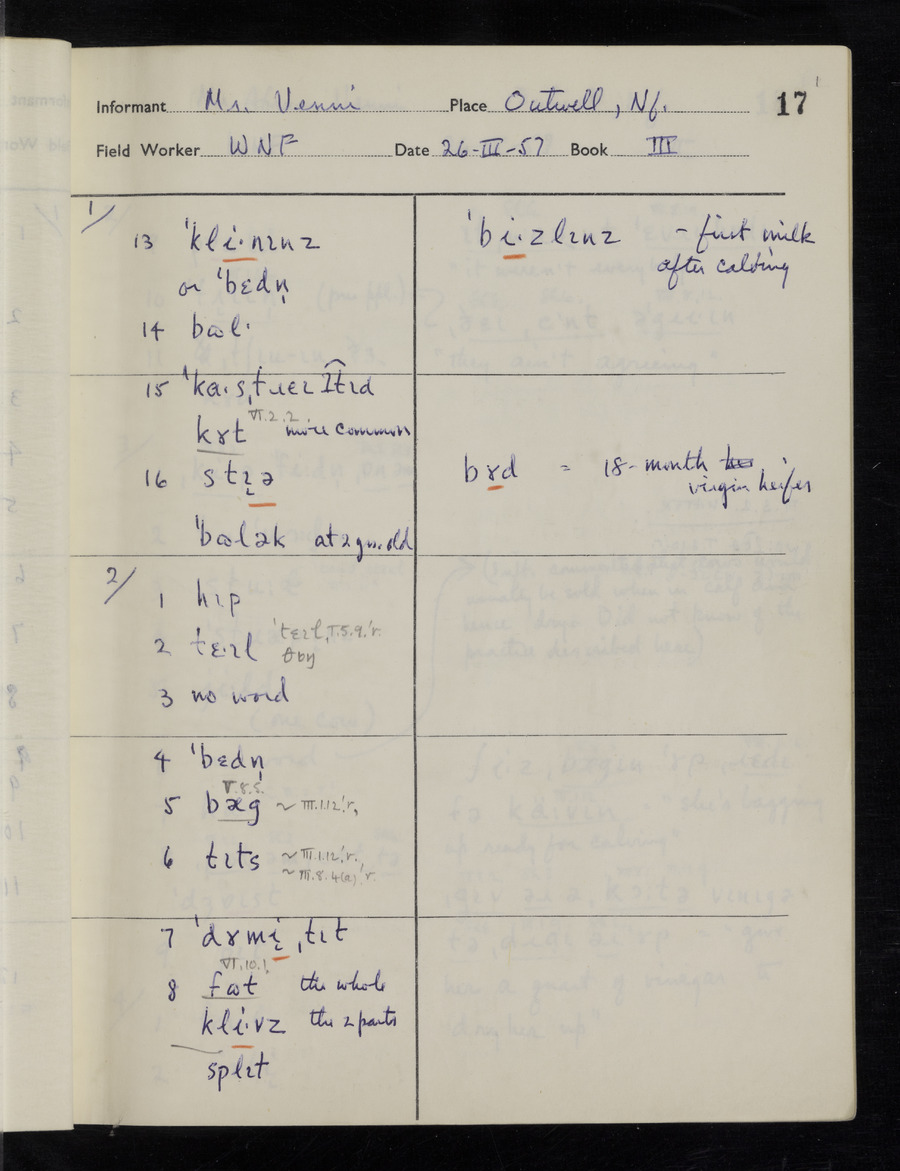 Informant Mr. Venni Place Outwell, Nf. 17
Field Worker WNF Date 26-III-57 Book III
1/
13 ˈkli·nɪnz
or ˈbɛdn̩
14 bɷl·
15
kɤt VI.2.2. more common
16 stɪə
ˈbɷlək at 2 yrs. old
2/
1 hɪp
2 tɛ·ɪl ˈtɛɪl, I.5.9.ˈr.
3 no word
4 ˈbɛdn̩
V.8.5.
5 bæg ~ III.1.12ˈr,
6 tɪts ~ III.1.12ˈr.
~ III.8.4(a)ˈr.
7 ˈdɤmi ˌtɪt
VI.10.1,
8 fɷt the whole
kli·vz the 2 parts
splɪt
ˈbi·zlɪnz - first milk
after calving
bɤd = 18-month
virgin heifer